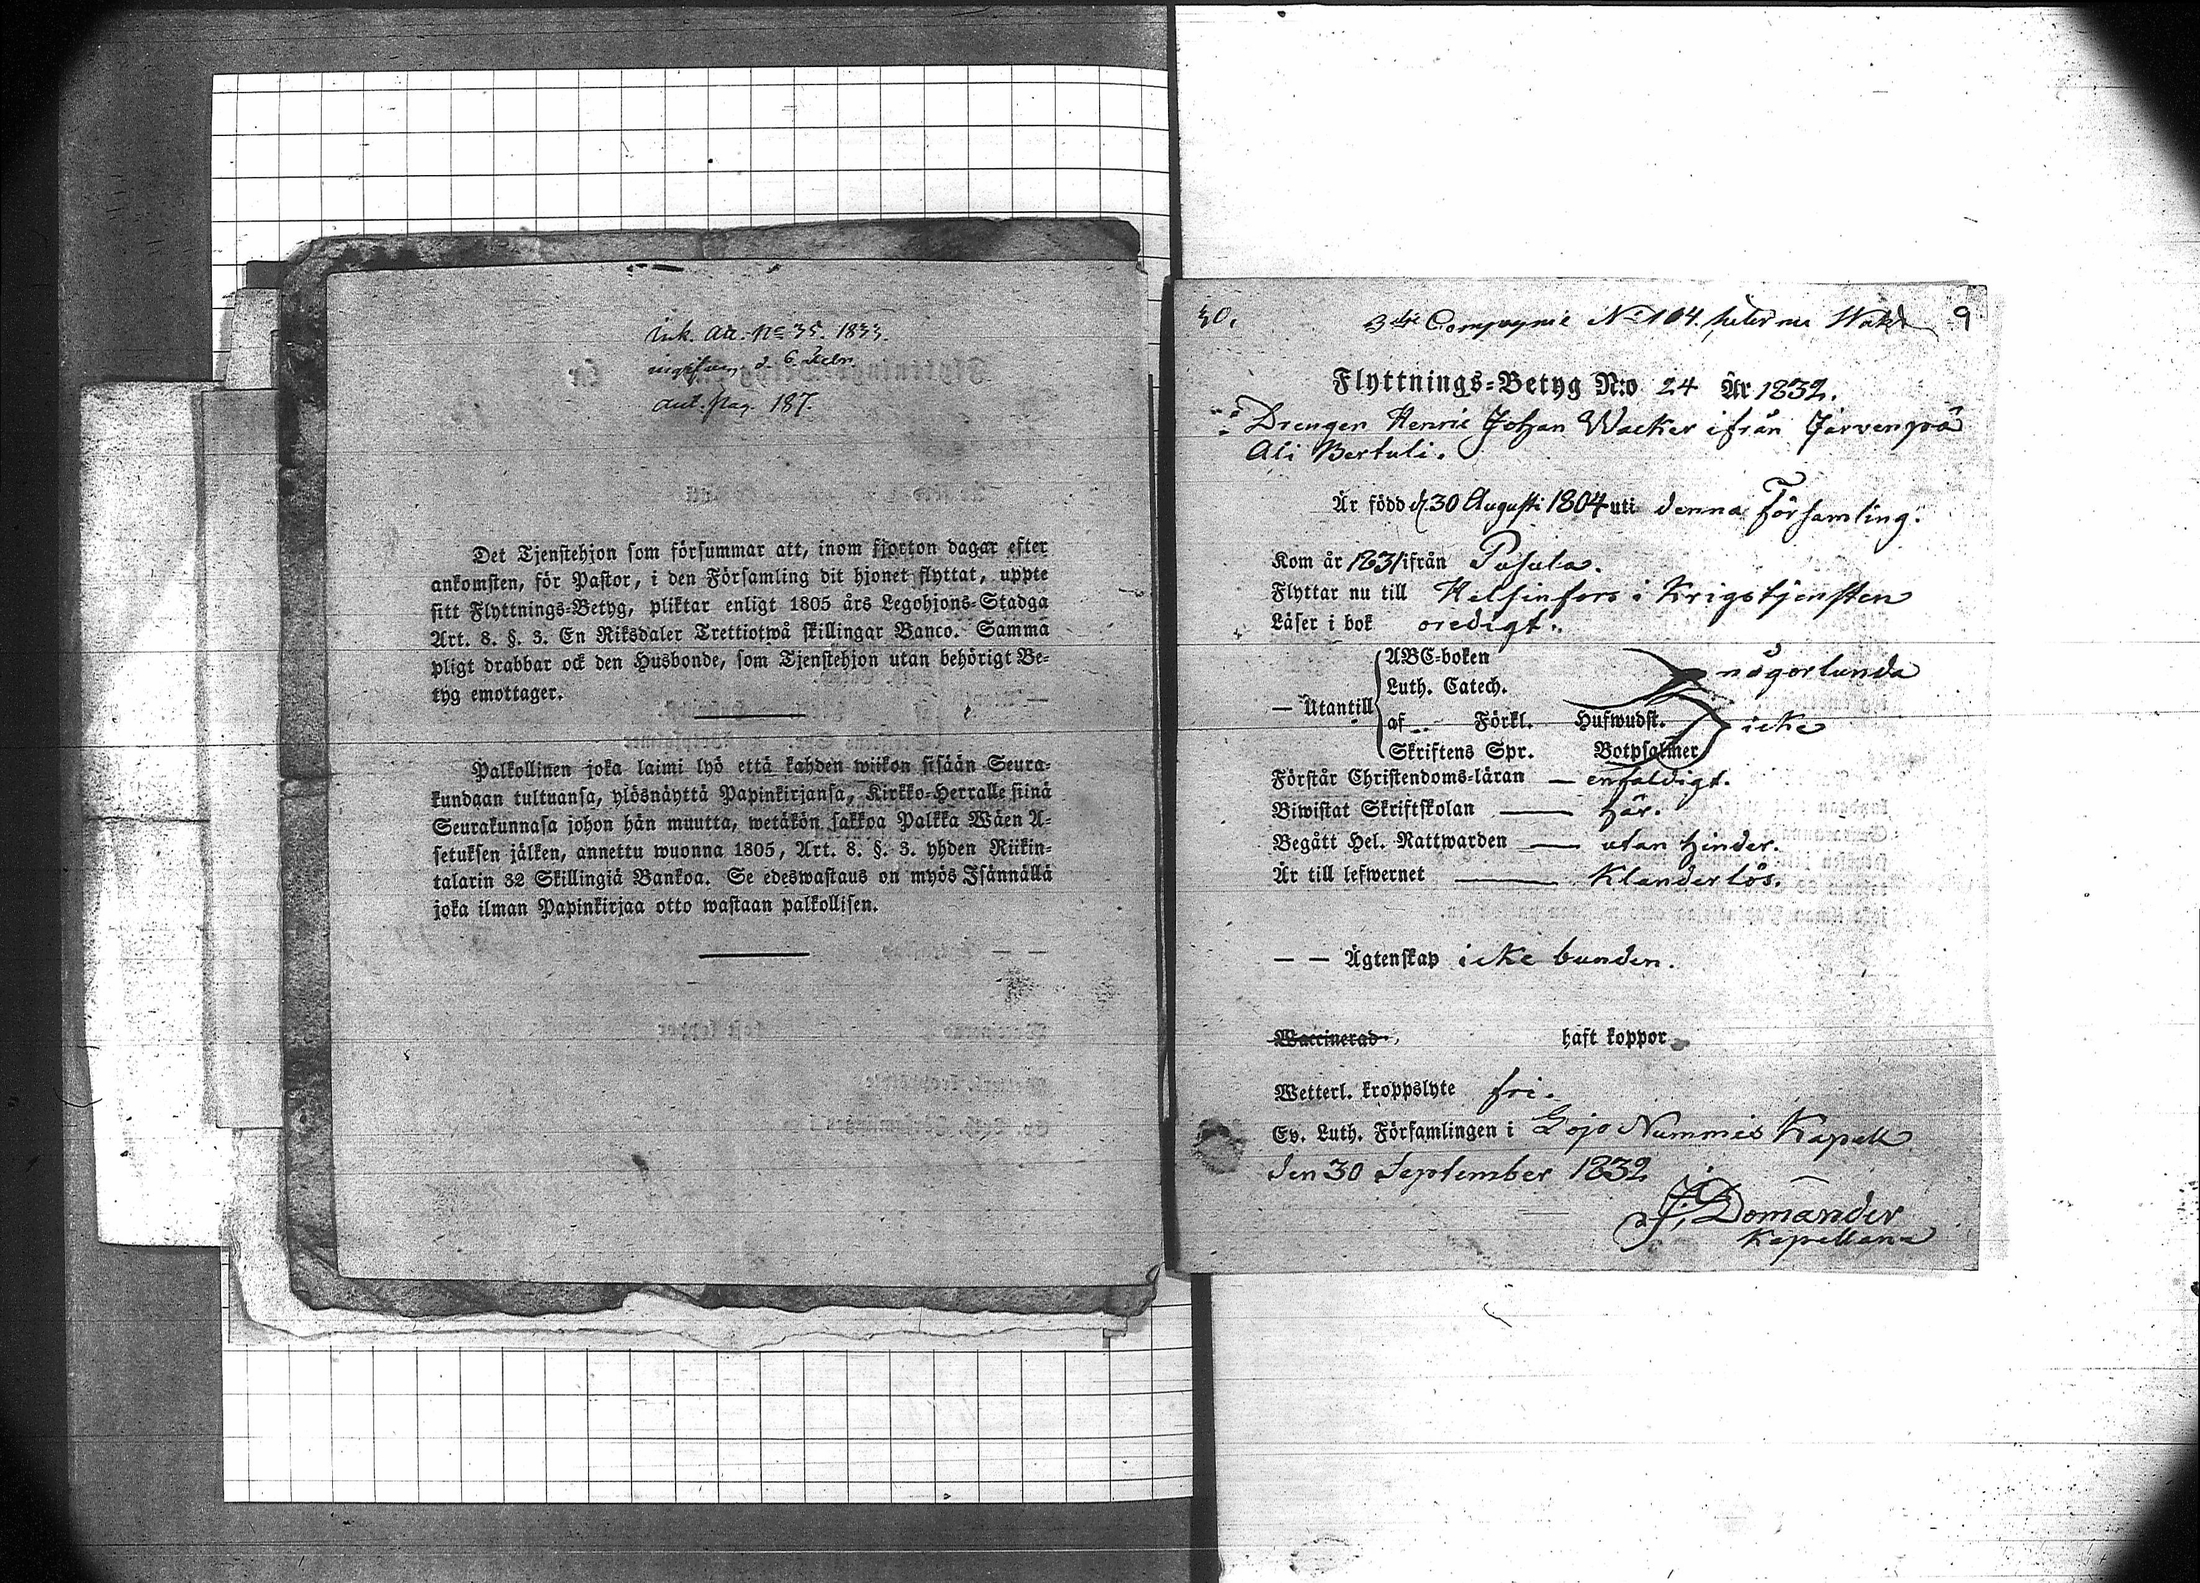 ink. att. No 35. 1833.
d. 6 Febr
ant. pag. 187.
Det Tjenstehjon som försummar att, inom fjorton dagar efter
ankomsten, för Pastor, i den Församling dit hjonet flyttat, uppte
sitt Flyttnings-Betyg, pliktar enligt 1805 års Legohjons-Stadga
Art. 8. §. 3. En Riksdaler Trettiotwå skillingar Banco. Samma
pligt drabbar ock den Husbonde, som Tjenstehjon utan behörigt Be-
tyg emottager.
Palkollinen joka laimi lyö että kahden wiikon sisään Seura-
kundaan tultuansa, ylösnäyttä Papinkirjansa, Kirkko-Herralle siinä
Seurakunnasa johon hän muutta, wetäkön sakkoa Palkka Wäen A-
setuksen jälken, annettu wuonna 1805, Art. 8. §. 3. yhden Riikin-
talarin 32 Skillingiä Bankoa. Se edeswastaus on myös Isännällä
joka ilman Papinkirjaa otto wastaan palkollisen.
30. 3dje Compagnie No 104. 9
Flyttnings-Betyg N:o 24 År 1832.
Drengen Henric Johan Wacker ifrån Järvenpä
Ali Bertuli.
Är född d. 30 Augusti 1804 uti denna Församling.
Kom år 1831 ifrån Pusula.
Flyttar nu till Helsinfors i Krigstjensten
Läser i bok oredigt.
ABC-boken
Luth. Catech. någorlunda
— Utantill af Förkl. Hufwudst. icke
Skriftens Spr. Botpsalmer
Förstår Christendoms-läran — enfaldigt.
Biwistat Skriftskolan — här.
Begått Hel. Nattwarden — utan hinder.
Är till lefwernet — Klanderlös.
— — Ägtenskap icke bunden.
Waccinerad haft koppor
Wetterl. kroppslyte fri.
Ev. Luth. Församlingen i Lojo Nummis Kapell
den 30 September 1832
J. Domander
Kapellan